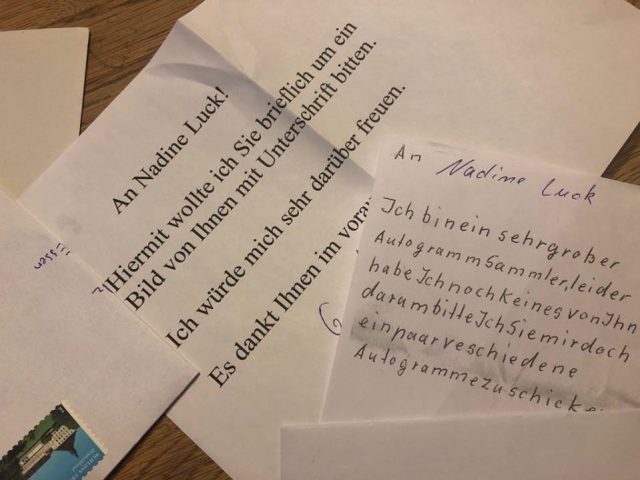 An Nadine Luck!
Hiermit wollte ich Sie brieflich um ein
Bild von Ihnen mit Unterschrift bitten.
Ich würde mich sehr darüber freuen.
Es dankt Ihnen im
An Nadine Luck
Ich bin ein sehr großer
Autogramm Sammler, leider
habe Ich noch keines von Ihn
darum bitte Ich Sie mir doch
ein paar veschiedene
Autogramme zu schicke